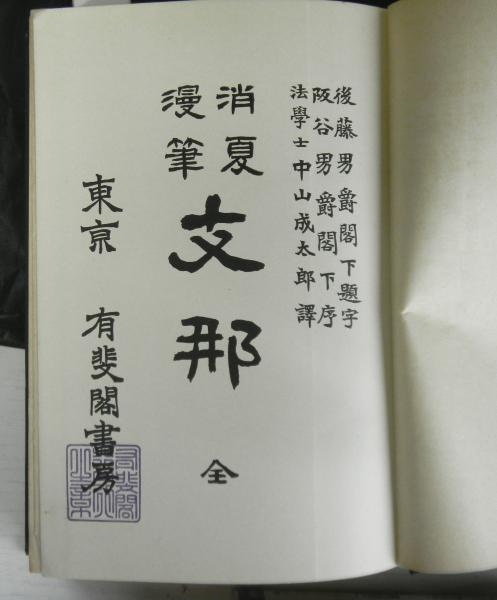 後藤男爵閣下題字
阪谷男爵閣下序
法學士中山成太郎譯
消夏
漫筆
支那
全
東京 有斐閣書房